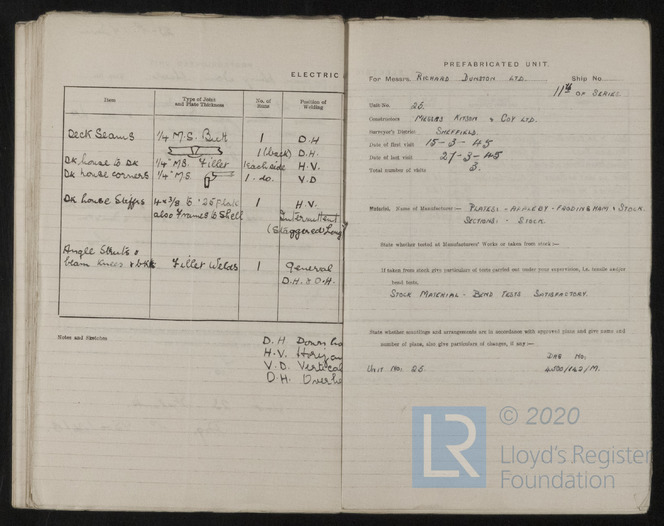 ELECTRIC
Item
Type of Joint
and Plate Thickness
No. of
Runs
Position of
Welding
Deck Seams
1/4 M.S. Butt
1
D.H
1 (back) D.H.
Dk house to Dk
1/4" M.S. Fillet
1 each side
H.V.
Dk house corners
1/4" M.S.
1 . do.
V.D
Dk house Stiffrs
4 x 3/8 to .25 plate
1
H.V.
also Frames to Shell
Intermittent
(Staggered
Angle Struts &
beam knees &
Fillet Welds
1
General
D.H. & O.H.
Notes and Sketches
D.H. Down ha
H.V. Horizon
V.D. Vertical
O.H. Overhe
PREFABRICATED UNIT.
For Messrs. RICHARD DUNSTON LTD.
Ship No.
11th OF SERIES.
Unit No. 25.
Constructors MESSRS KITSON & COY LTD.
Surveyor's District SHEFFIELD.
Date of first visit 15-3-45
Date of last visit 27-3-45
Total number of visits 3.
Material. Name of Manufacturer:- PLATES:- APPLEBY-FRODINGHAM & STOCK.
SECTIONS. - STOCK.
State whether tested at Manufacturers' Works or taken from stock:-
If taken from stock give particulars of tests carried out under your supervision, i.e. tensile and/or
bend tests.
STOCK MATERIAL - BEND TESTS SATISFACTORY.
State whether scantlings and arrangements are in accordance with approved plans and give name and
number of plans, also give particulars of changes, if any:-
DRG NO.
UNIT NO. 25.
4500/142/M.
© 2020
LR
Lloyd's Register
Foundation